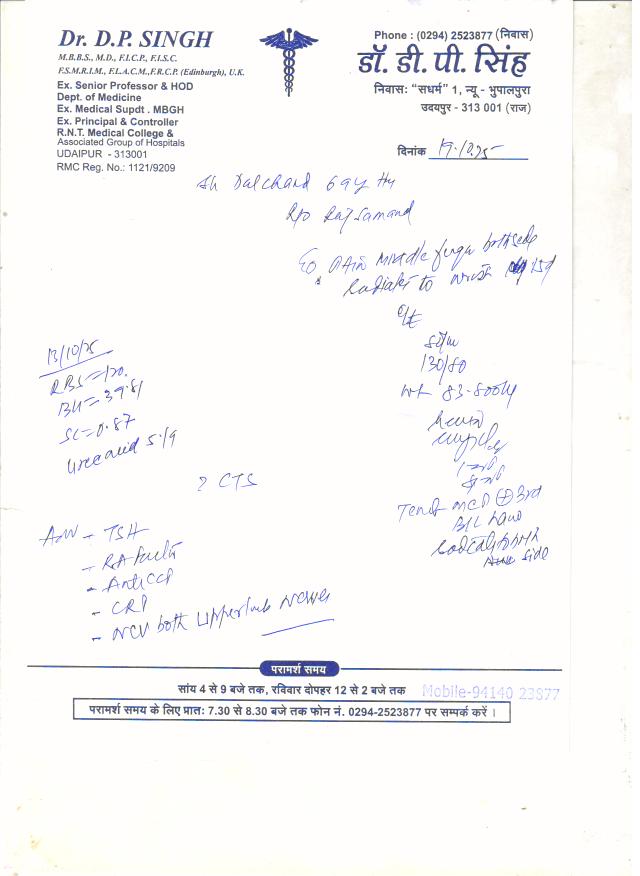 Dr. D.P. SINGH
M.B.B.S., M.D., F.I.C.P., F.I.S.C.
F.S.M.R.I.M., F.I.A.C.M.,F.R.C.P. (Edinburgh), U.K.
Ex. Senior Professor & HOD
Dept. of Medicine
Ex. Medical Supdt . MBGH
Ex. Principal & Controller
R.N.T. Medical College &
Associated Group of Hospitals
UDAIPUR - 313001
RMC Reg. No.: 1121/9209
Phone : (0294) 2523877 (निवास)
डॉ. डी. पी. सिंह
निवास: “सधर्म” 1, न्यू - भुपालपुरा
उदयपुर - 313 001 (राज)
दिनांक 19.10.25
Sh Dalchand 69y
R/o Rajsamand
Pain Middle finger both side
radiates to wrist 15d
O/E
130/80
wt 83.800kg
13/10/25
RBS = 120.
BU = 39.81
SC = 0.87
Uric acid 5.19
? CTS
Tender MCP ⊕ 3rd
B/L hand
side
Adv - TSH
- RA factor
- Anti CCP
- CRP
- NCV both upper limb nerves
परामर्श समय
सांय 4 से 9 बजे तक, रविवार दोपहर 12 से 2 बजे तक
Mobile-94140 23877
परामर्श समय के लिए प्रात: 7.30 से 8.30 बजे तक फोन नं. 0294-2523877 पर सम्पर्क करें ।